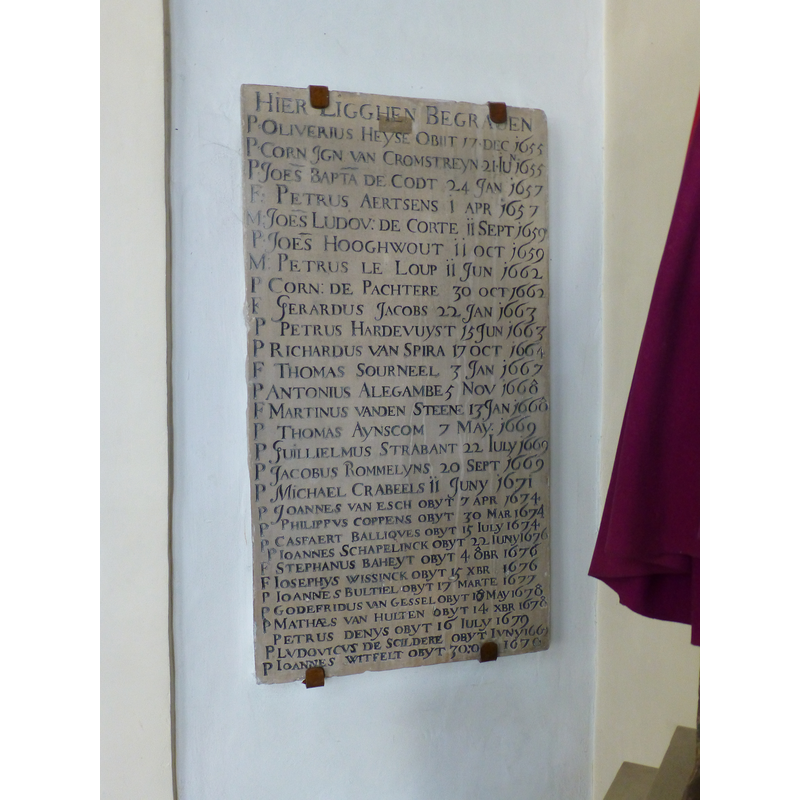 HIER LIGGHEN BEGRAUEN
P. OLIVERIUS HEYSE OBIIT 17 DEC 1655
P. CORN JGN VAN CROMSTREYN 21 IUN 1655
P. JOES BAPTA DE CODT 24 JAN 1657
F: PETRUS AERTSENS 1 APR 1657
M. JOES LUDOV: DE CORTE 11 SEPT 1659
P. JOES HOOGHWOUT 11 OCT 1659
M. PETRUS LE LOUP 11 JUN 1662
P CORN: DE PACHTERE 30 OCT 1662
F GERARDUS JACOBS 22 JAN 1663
P PETRUS HARDEVUYST 15 JUN 1663
P RICHARDUS VAN SPIRA 17 OCT 1664
F THOMAS SOURNEEL 3 JAN 1667
P ANTONIUS ALEGAMBE 5 NOV 1668
F MARTINUS VANDEN STEENE 13 JAN 1668
P THOMAS AYNSCOM 7 MAY: 1669
P GUILLIELMUS STRABANT 22 IULY 1669
P JACOBUS ROMMELYNS 20 SEPT 1669
P MICHAEL CRABEELS 11 JUNY 1671
P JOANNES VAN ESCH OBYT 7 APR 1674
P PHILIPPVS COPPENS OBYT 30 MAR 1674
P CASPAERT BALLIQVES OBYT 15 IULY 1674
P IOANNES SCHAPELINCK OBYT 22 IUNY 1676
F STEPHANUS BAHEYT OBYT 4 8BR 1676
F IOSEPHYS WISSINCK OBYT 15 XBR 1676
P IOANNES BULTIEL OBYT 17 MARTE 1677
P GODEFRIDUS VAN GESSEL OBYT 18 MAY 1678
P MATHÆS VAN HULTEN OBYT 14 XBR 1678
PETRUS DENYS OBYT 16 IULY 1679
P LVDOVICVS DE SCILDERE OBYT IVNY
P IOANNES WITFELT OBYT